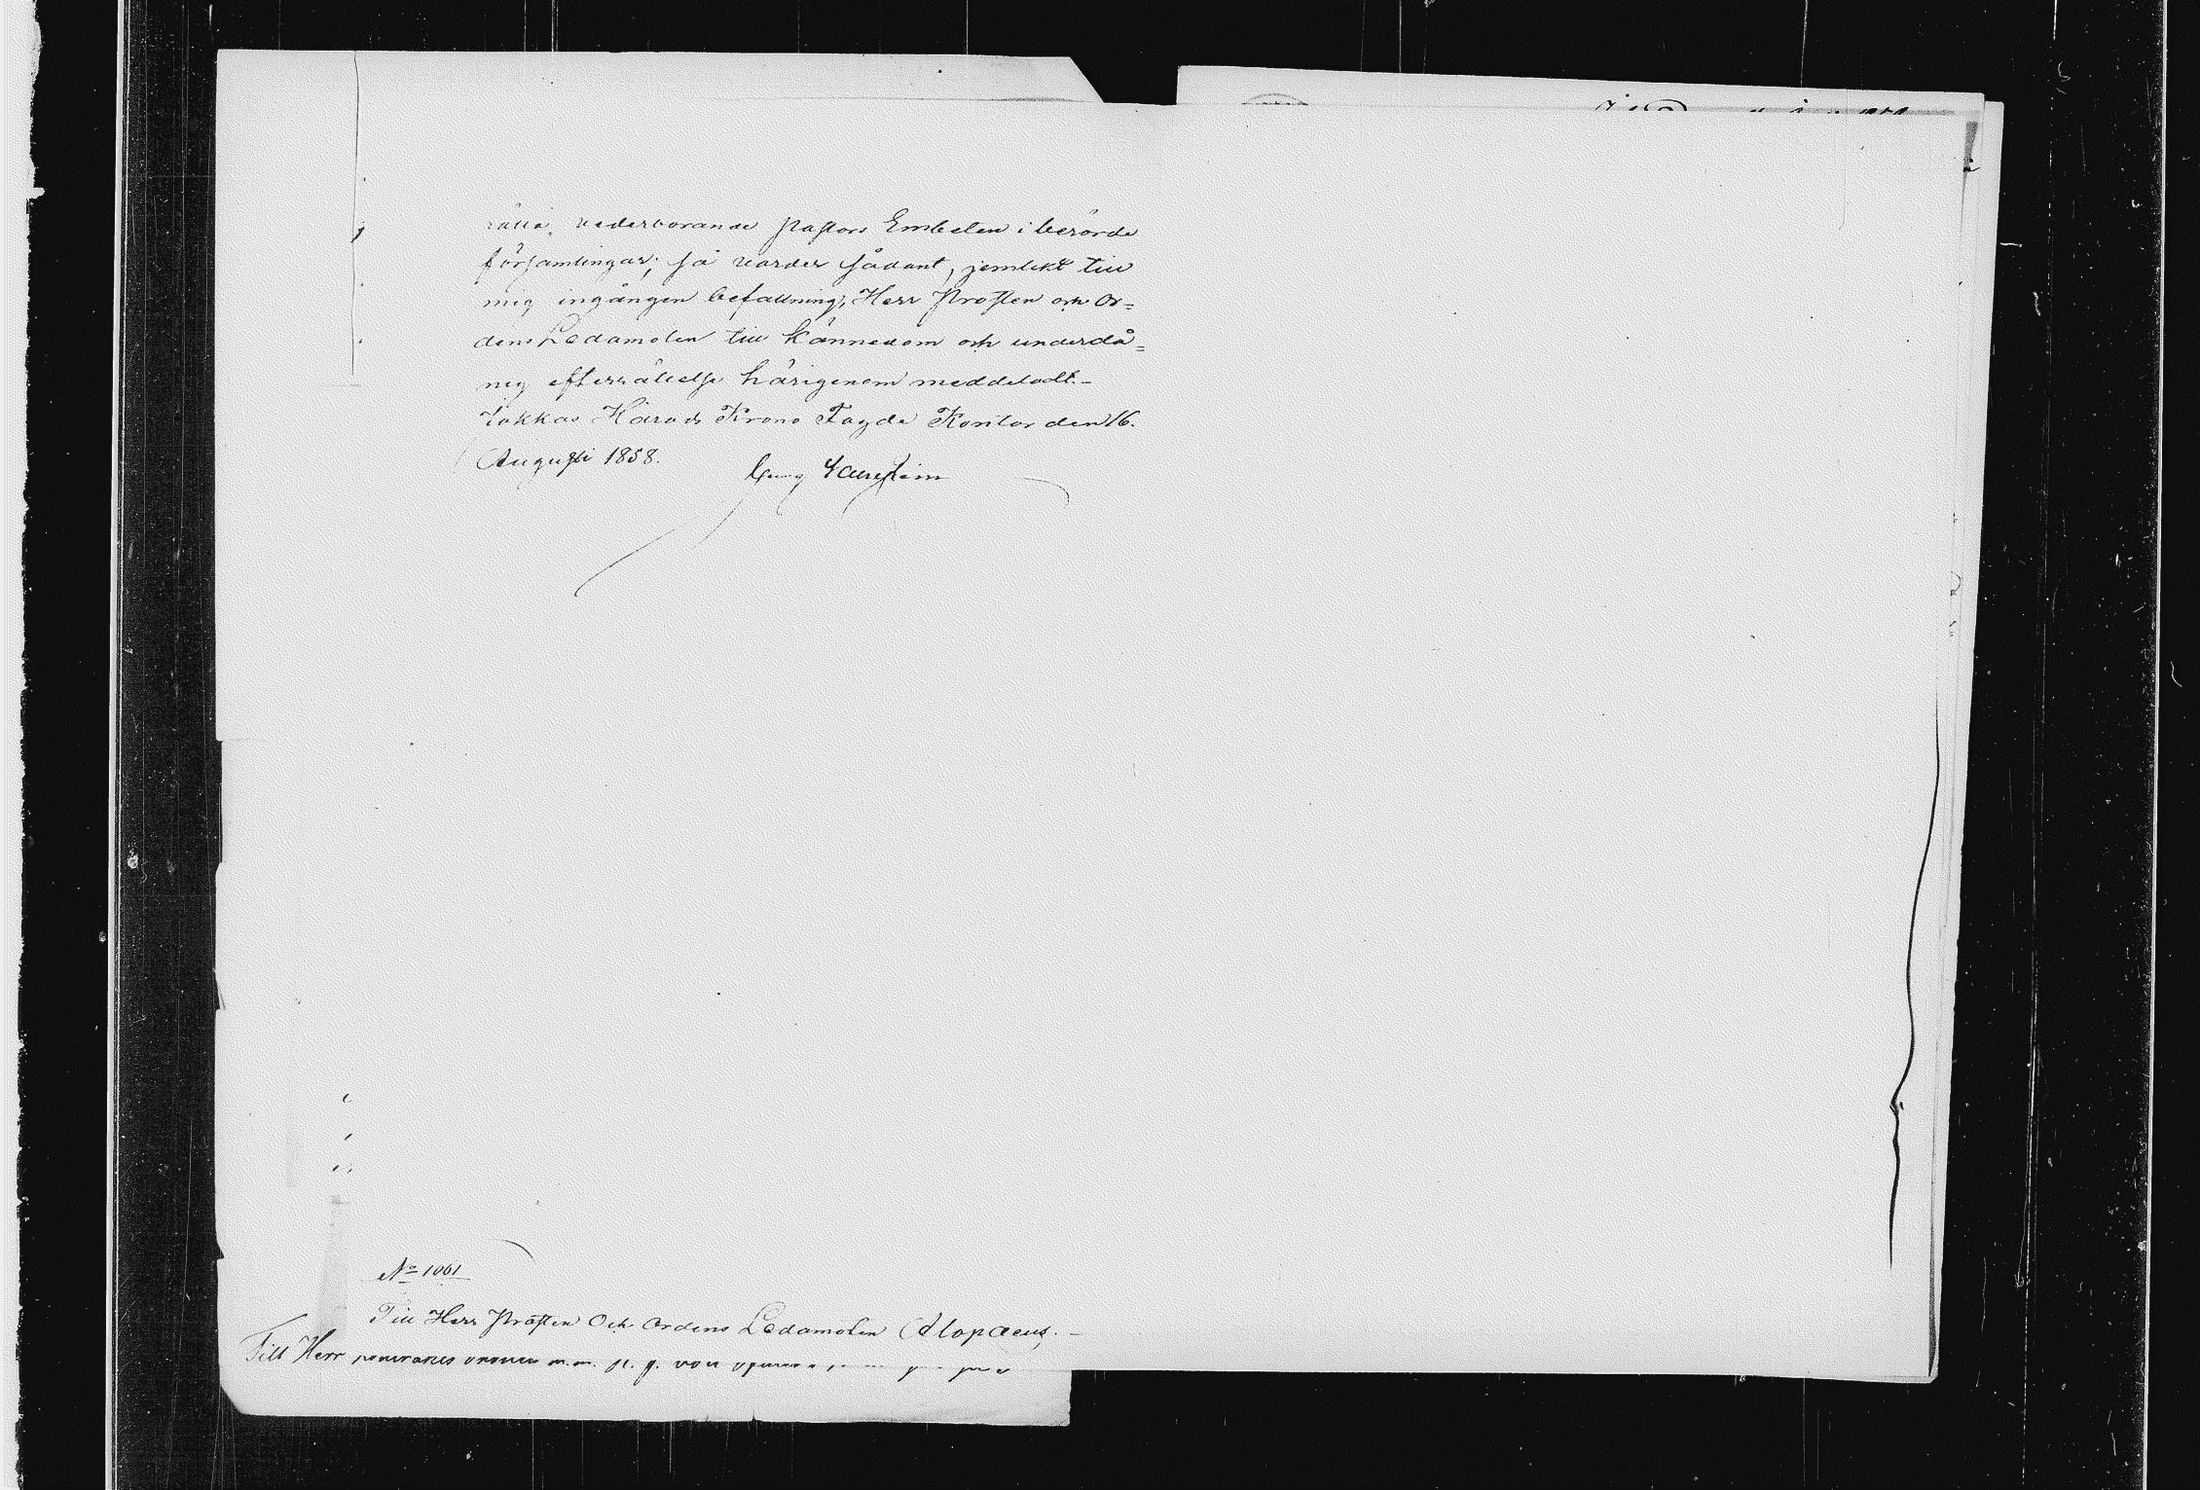 rätta, vederbörande Pastors Embeten i berörde
församlingar; så varder sådant, jemlikt till
mig ingången befallning, Herr Prosten och Or=
dens Ledamoten till kännedom och underdå=
nig efterrättelse härigenom meddeladt.-
Jokkas Härads Krono Fogde Kontor den 16.
Augusti 1858.
No 1061
Till Herr Prosten Och Ordens Ledamoten Alopaeus.-
Till Herr